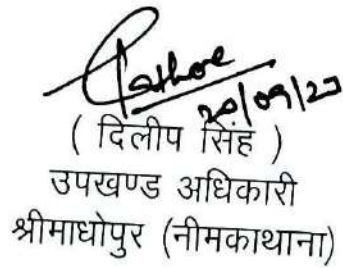 Rathore
20/09/23
( दिलीप सिंह )
उपखण्ड अधिकारी
श्रीमाधोपुर (नीमकाथाना)